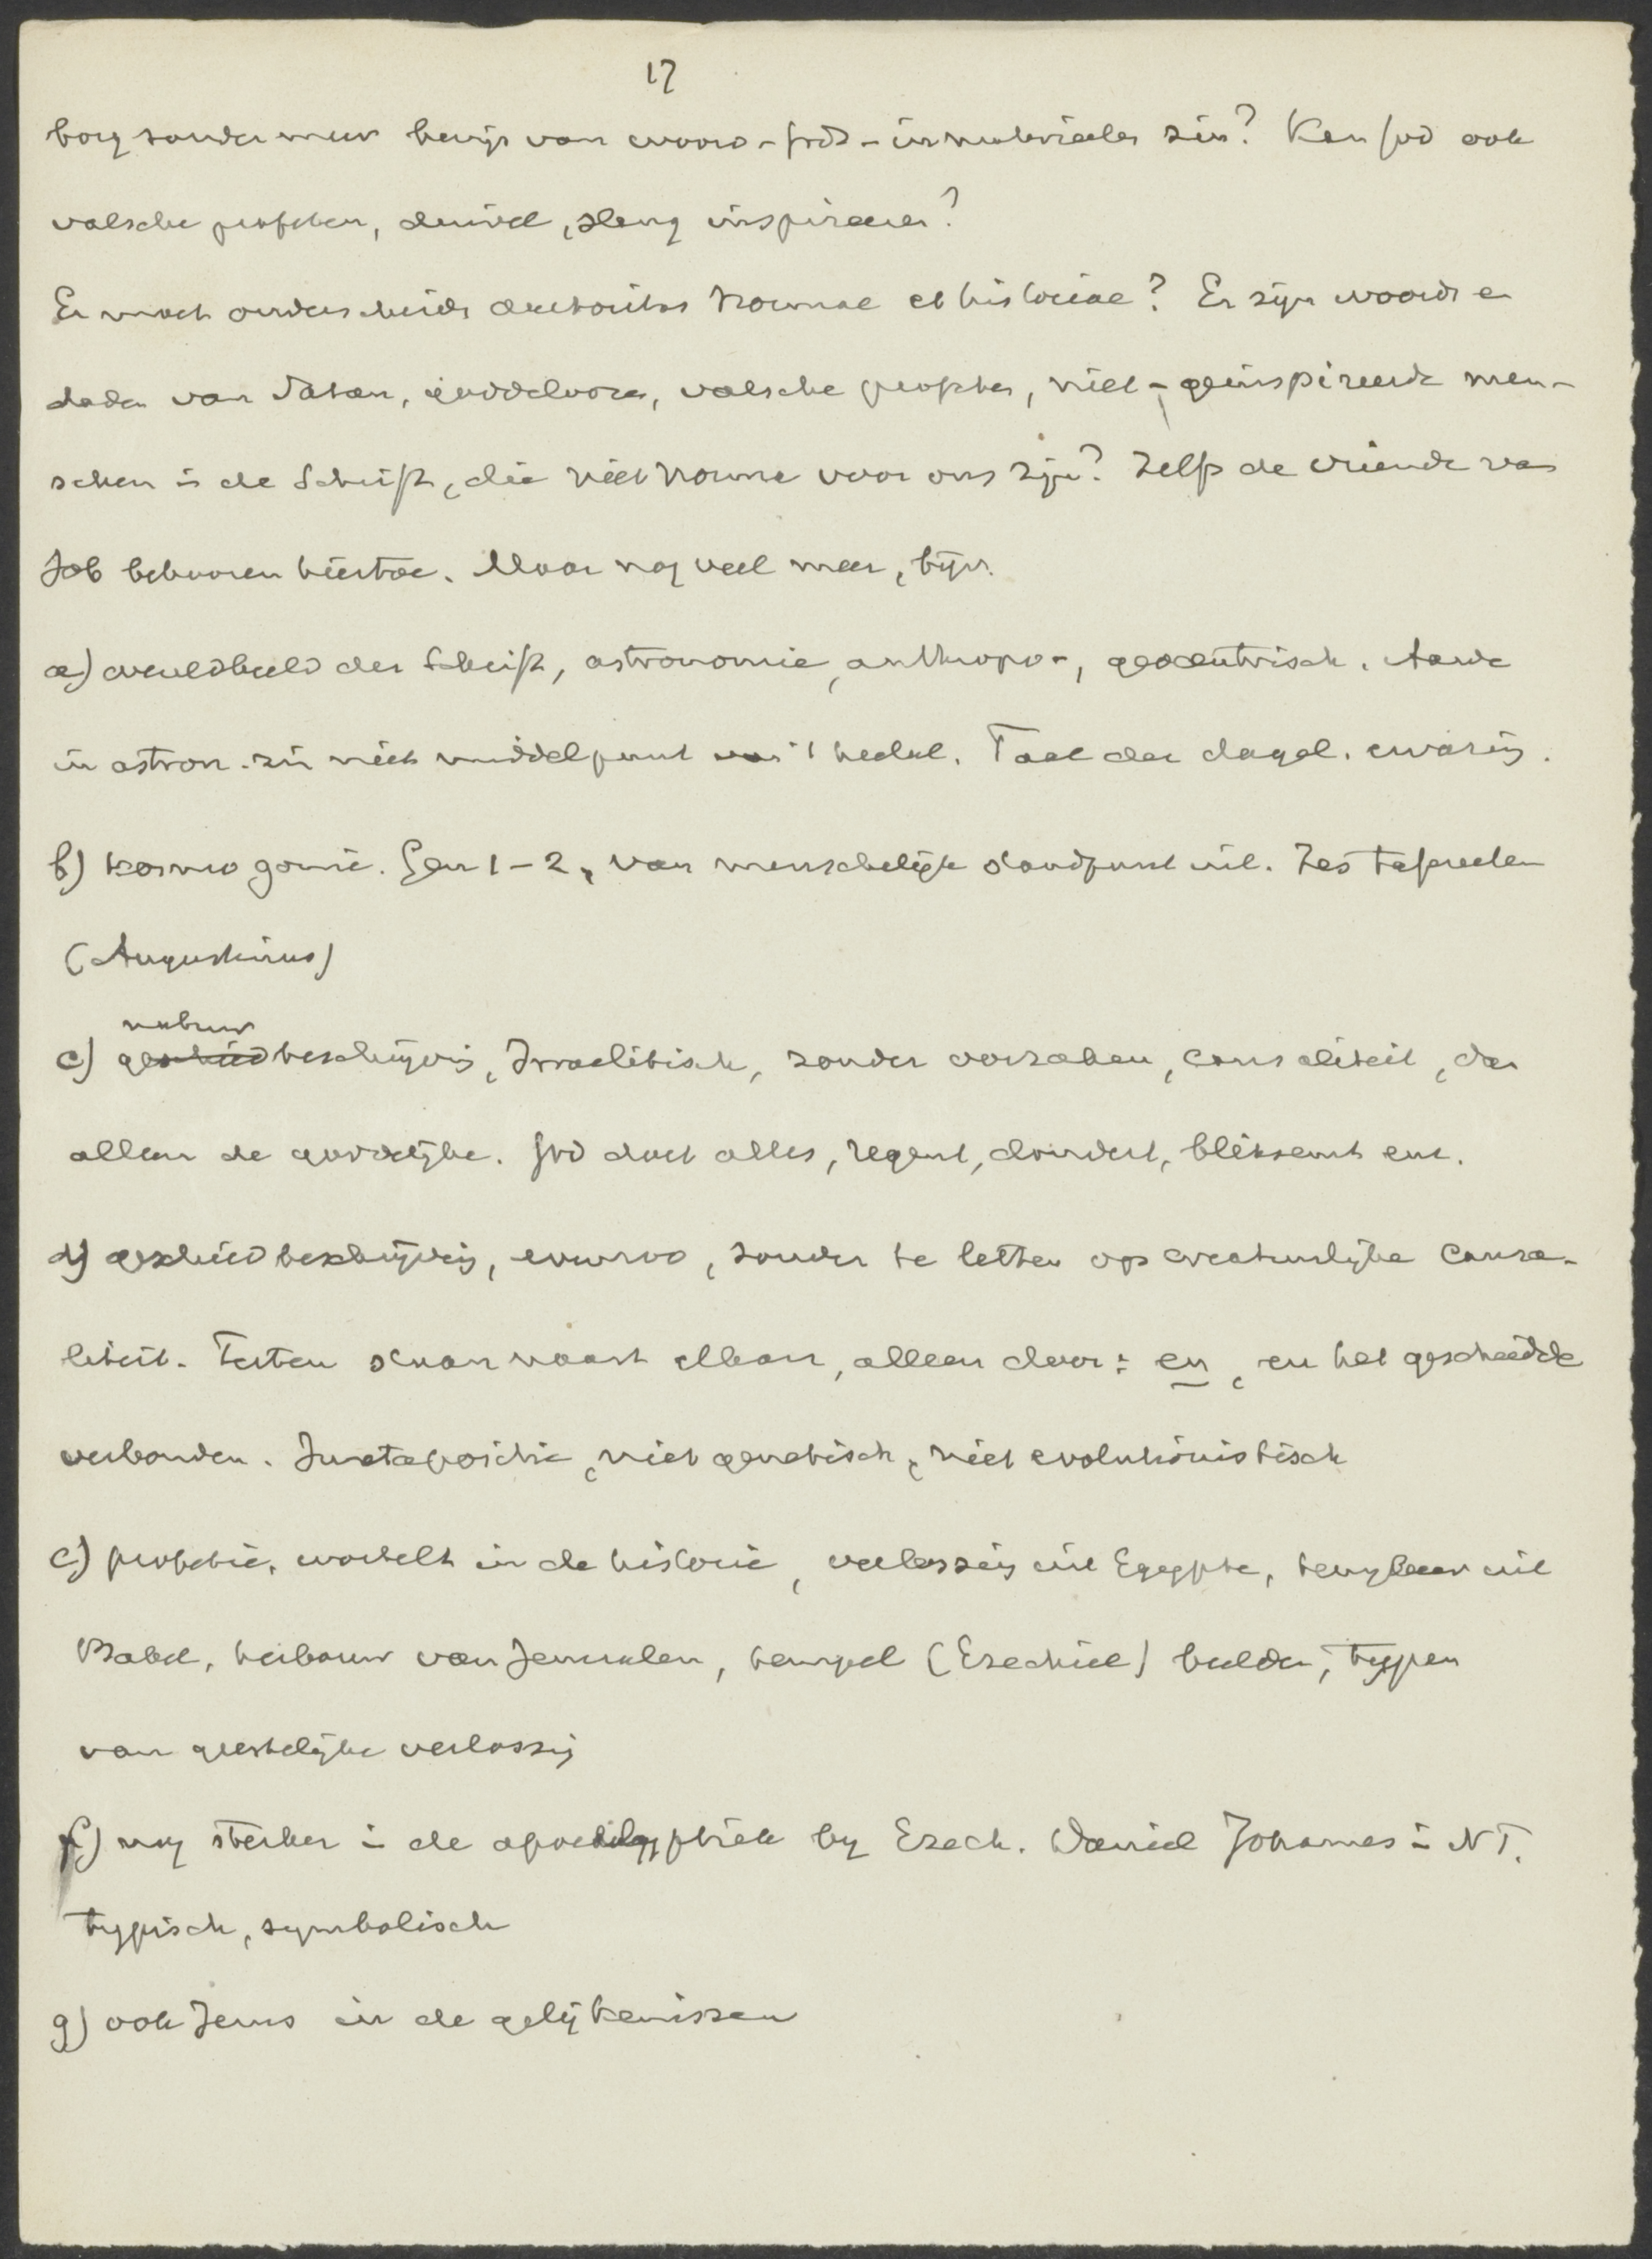 17
borg zonder meer bewijs van woord-Gods-in materieelen zin? Kan God ook
valsche profeten, duivel, slang inspireeren?
Er moet onderscheiden auctoritas normae et historiae? Er zijn woorden en
daden van Satan, goddeloozen, valsche profeten, niet-geinspireerde men-
schen in de Schrift, die niet norma voor ons zijn? Zelfs de vrienden van
Job behooren hiertoe. Maar nog veel meer, bijv.
a) wereldbeeld der Schrift, astronomie, anthropo-, geocentrisch. Aarde
in astron. zin niet middelpunt van 't heelal. Taal der dagel. ervaring.
b) kosmogonie. Gen 1-2, van menschelijk standpunt uit. Zes tafereelen
(Augustinus)
natuur
c) geschiedbeschrijving, Israelitisch, zonder oorzaken, causaliteit, dan
alleen de goddelijke. God doet alles, regent, dondert, bliksemt enz.
d) geschiedbeschrijving, evenzoo, zonder te letten op creatuurlijke causa-
liteit. Feiten staan naast elkaar, alleen door: en, en het geschiedde
verbonden. Juxtapositie, niet genetisch, niet evolutionistisch
e) profetie, wortelt in de historie, verlossing uit Egypte, terugkeer uit
Babel, herbouw van Jeruzalem, tempel (Ezechiel) beelden, typen
van geestelijke verlossing
f) nog sterker in de apocalyptiek by Ezech. Daniel Johannes in NT.
typisch, symbolisch
g) ook Jezus in de gelijkenissen